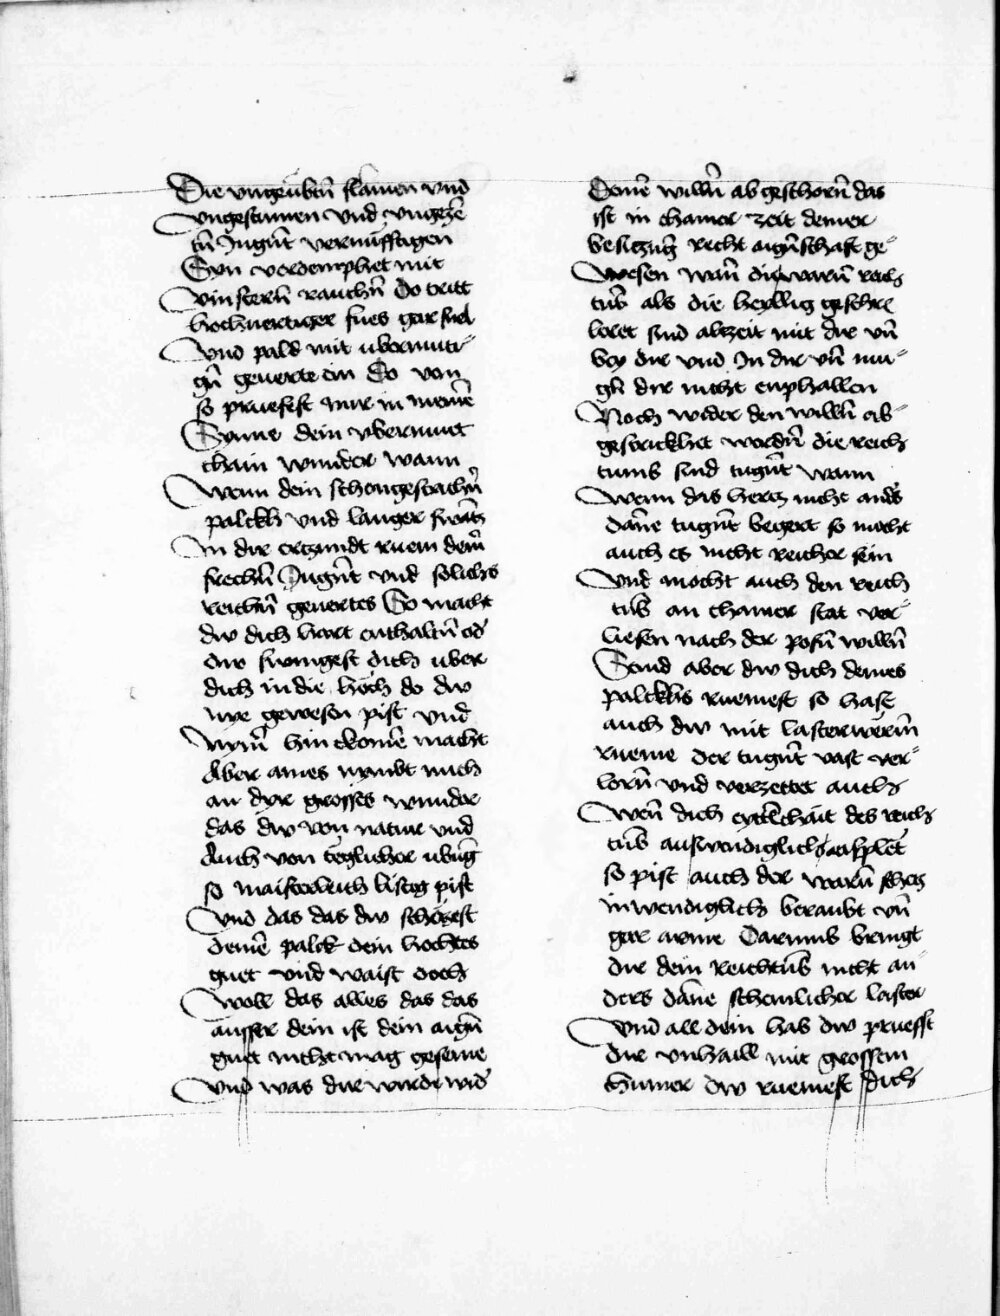 Die vngeubtn̄ flamen vnd
vngestumen vnd vngeze
tn̄ Jugn̄t vernufftigen
Syn verdemphet mit
vinstern̄ rauchn̄ Do tritt
hochuertiger fues gar snel
vnd pald mit ubermuti
gn̄ geuerte ein Do von
so pruefest nur in meinē
Synne dein vbermuet
chain wunder wann
Wenn dein schongestrachn̄
palckh vnd langer swātz
In dir erczundt ruem dem̄
frechn̄ Jugn̄t vnd solichs
reichn̄ geuertes So macht
dw dich hart enthaltn̄ od'
dw swingest dich uber
dich in die höch do dw
nye gewesen pist vnd
nym̄ hin chomē macht
Aber aines nymbt mich
an dyr grosses wunder
das dw von natur vnd
Auch von teglicher ubūg
so maisterlich listig pist
vnd das das dw scheczest
deinē palck dein hochstes
guet vnd waist doch
Woll das alles das das
ausser dein ist dein aign̄
guet nicht mag gesein
vnd was dir wirdt wid'
Deinē willn̄ abgeschorn̄ das
ist in chainer zeit deiner
besiczūg recht aign̄schaft ge
wesen wan̄ die warn̄ reich
tūb als die heyllig geschre
loret sind alczeit mit dir vn̄
bey dir vnd In dir vn̄ mu
gn̄ dir nicht enphallen
Noch wider den willn̄ ab
gestrickhet werdn̄ die reich
tumb sind tugn̄t wann
Wenn das hercz nicht and's
dān̄e tugn̄t begert so mocht
auch es nicht reicher sein
vnd mocht auch den reich
tūb an chainer stat ver
liesen nach der posn̄ willn̄
Seid aber dw dich deines
palckhs ruemest so hast
auch dw mit lasterwerin̄
rueme der tugn̄t vast ver
lorn̄ vnd verzettet auch
Wen̄ dich eytelchait des reich
tūb auswendiglich
so pist auch der warn̄ schecz
inwendiglich beraubt vn̄
gar arme Darumb bringt
dir dein reichtūb nicht an
ders dān̄e scheinlicher laster
vnd all dein hab dw pruefst
dir vnhaill mit grossem
chumer dw ruemest dich